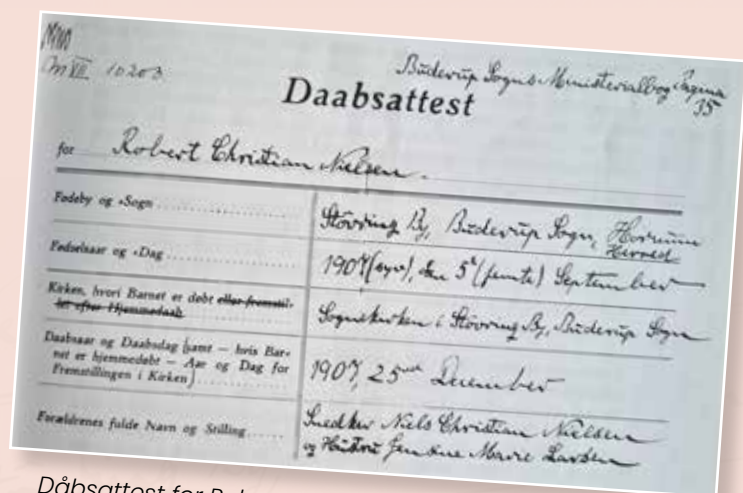 VII 10203
Buderup Sogns Ministerialbog Pagina
35
Daabsattest
for Robert Christian Nielsen.
Fødeby og -Sogn
Støvring By, Buderup Sogn, Hornum
Herred
Fødselsaar og -Dag
1907 (syv), den 5te (femte) September
Kirken, hvori Barnet er døbt eller fremstil-
let efter Hjemmedaab
Sognekirken i Støvring By, Buderup Sogn
Daabsaar og Daabsdag (samt — hvis Bar-
net er hjemmedøbt — Aar og Dag for
Fremstillingen i Kirken)
1907, 25 December
Forældrenes fulde Navn og Stilling
Snedker Niels Christian Nielsen
og Hustru Marie Larsen
Dåbsattest for